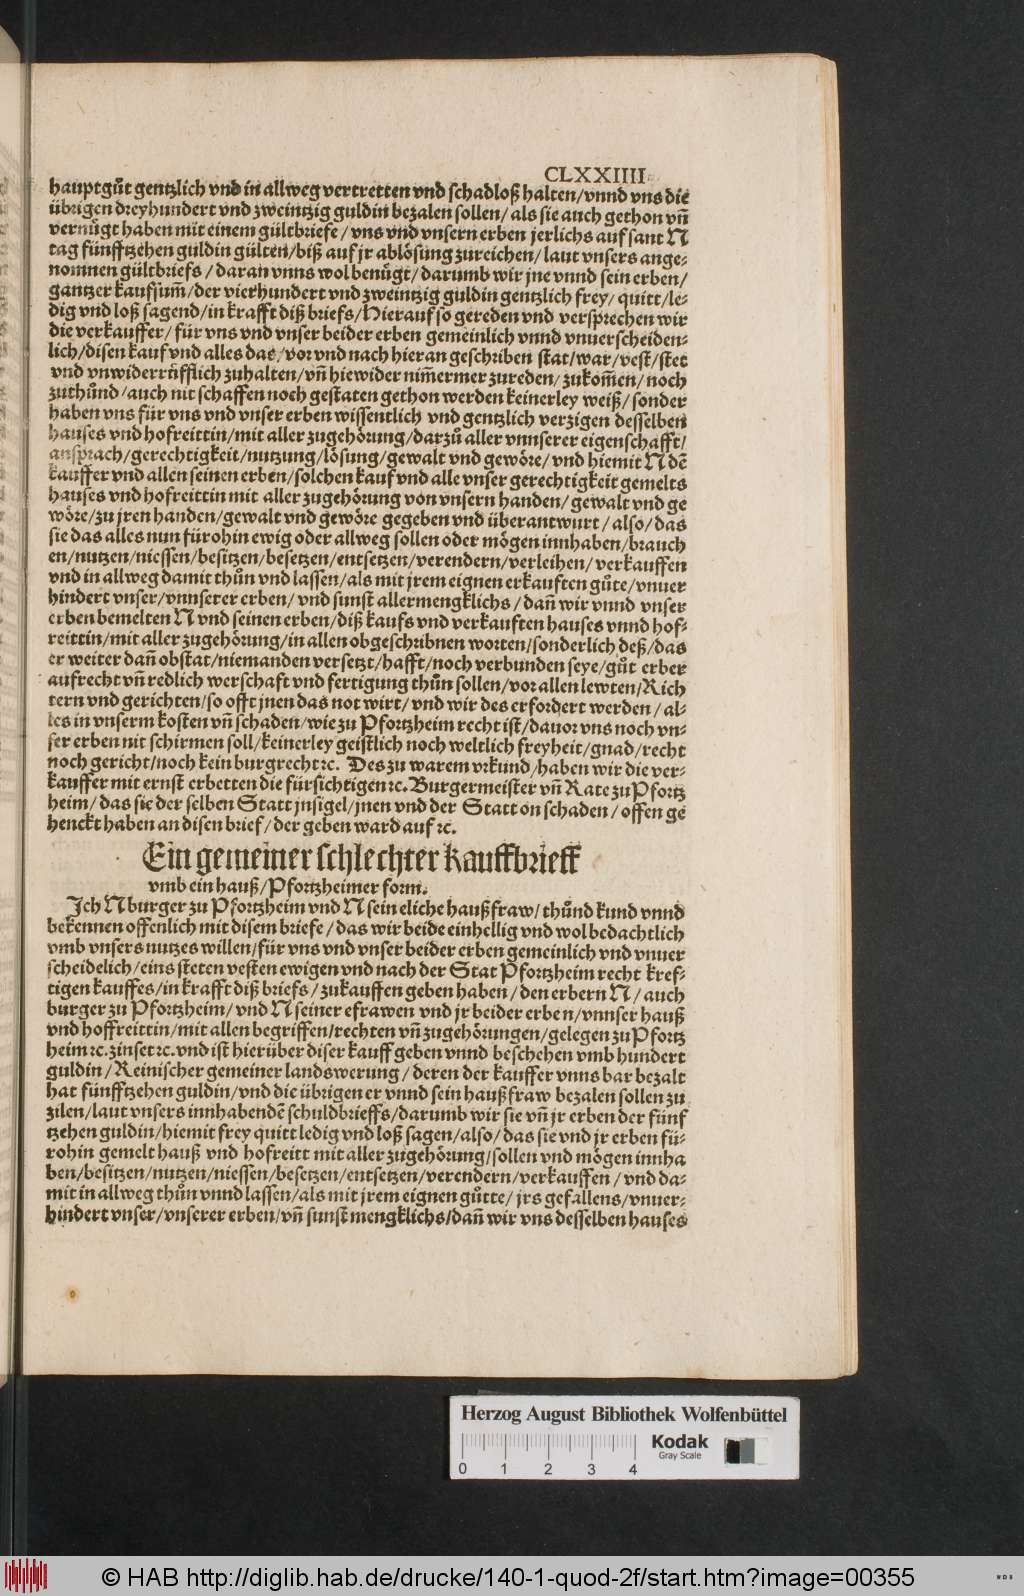 CLXXIIII
hauptgůt gentzlich vnd in allweg vertretten vnd schadloß halten/vnnd vns die
übrigen dreyhundert vnd zweintzig guldin bezalen sollen/als sie auch gethon vn̄
vernůgt haben mit einem gültbriefe/vns vnd vnsern erben jerlichs auf sant N
tag fünfftzehen guldin gülten/biß auf jr ablösung zureichen/laut vnsers ange-
nomnen gültbriefs/daran vnns wol benůgt/darumb wir jne vnnd sein erben/
gantzer kaufsum̄/der vierhundert vnd zweintzig guldin gentzlich frey/quitt/le-
dig vnd loß sagend/in krafft diß briefs/Hierauf so gereden vnd versprechen wir
die verkauffer/für vns vnd vnser beider erben gemeinlich vnnd vnuerscheiden-
lich/disen kauf vnd alles das/vor vnd nach hieran geschriben stat/war/vest/stet
vnd vnwiderrůfflich zuhalten/vn̄ hiewider nim̄ermer zureden/zukom̄en/noch
zuthůnd/auch nit schaffen noch gestaten gethon werden keinerley weiß/sonder
haben vns für vns vnd vnser erben wissentlich vnd gentzlich verzigen desselben
hauses vnd hofreittin/mit aller zugehörung/darzů aller vnnserer eigenschafft/
ansprach/gerechtigkeit/nutzung/lösung/gewalt vnd gewöre/vnd hiemit N dē
kauffer vnd allen seinen erben/solchen kauf vnd alle vnser gerechtigkeit gemelts
hauses vnd hofreittin mit aller zugehörung von vnsern handen/gewalt vnd ge
wöre/zu jren handen/gewalt vnd gewöre gegeben vnd überantwurt/also/das
sie das alles nun fürohin ewig oder allweg sollen oder mögen innhaben/brauch
en/nutzen/niessen/besitzen/besetzen/entsetzen/verendern/verleihen/verkauffen
vnd in allweg damit thůn vnd lassen/als mit jrem eignen erkauften gůte/vnuer
hindert vnser/vnnserer erben/vnd sunst allermengklichs/dan̄ wir vnnd vnser
erben bemelten N vnd seinen erben/diß kaufs vnd verkauften hauses vnnd hof-
reittin/mit aller zugehörung/in allen obgeschribnen worten/sonderlich deß/das
er weiter dan̄ obstat/niemanden versetzt/hafft/noch verbunden seye/gůt erber
aufrecht vn̄ redlich werschaft vnd fertigung thůn sollen/vor allen lewten/Rich
tern vnd gerichten/so offt jnen das not wirt/vnd wir des erfordert werden/al-
les in vnserm kosten vn̄ schaden/wie zu Pfortzheim recht ist/dauor vns noch vn-
ser erben nit schirmen soll/keinerley geistlich noch weltlich freyheit/gnad/recht
noch gericht/noch kein burgrecht ꝛc. Des zu warem vrkund/haben wir die ver-
kauffer mit ernst erbetten die fürsichtigen ꝛc. Burgermeister vn̄ Rate zu Pfortz
heim/das sie der selben Statt jnsigel/jnen vnd der Statt on schaden/offen ge
henckt haben an disen brief/der geben ward auf ꝛc.
Ein gemeiner schlechter kauffbrieff
vmb ein hauß/Pfortzheimer form.
Ich N burger zu Pfortzheim vnd N sein eliche haußfraw/thůnd kund vnnd
bekennen offenlich mit disem briefe/das wir beide einhellig vnd wol bedachtlich
vmb vnsers nutzes willen/für vns vnd vnser beider erben gemeinlich vnd vnuer
scheidelich/eins steten vesten ewigen vnd nach der Stat Pfortzheim recht kref-
tigen kauffes/in krafft diß briefs/zukauffen geben haben/den erbern N/auch
burger zu Pfortzheim/vnd N seiner efrawen vnd jr beider erben/vnnser hauß
vnd hoffreittin/mit allen begriffen/rechten vn̄ zugehörungen/gelegen zu Pfortz
heim ꝛc. zinset ꝛc. vnd ist hierüber diser kauff geben vnnd beschehen vmb hundert
guldin/Reinischer gemeiner landswerung/deren der kauffer vnns bar bezalt
hat fünfftzehen guldin/vnd die übrigen er vnnd sein haußfraw bezalen sollen zu
zilen/laut vnsers innhabendē schuldbrieffs/darumb wir sie vn̄ jr erben der fünf
tzehen guldin/hiemit frey quitt ledig vnd loß sagen/also/das sie vnd jr erben fü-
rohin gemelt hauß vnd hofreitt mit aller zugehörung/sollen vnd mögen innha
ben/besitzen/nutzen/niessen/besetzen/entsetzen/verendern/verkauffen/vnd da-
mit in allweg thůn vnnd lassen/als mit jrem eignen gůtte/jrs gefallens/vnuer-
hindert vnser/vnserer erben/vn̄ sunst mengklichs/dan̄ wir vns desselben hauses
Herzog August Bibliothek Wolfenbüttel
Kodak
Gray Scale
0 1 2 3 4
© HAB http://diglib.hab.de/drucke/140-1-quod-2f/start.htm?image=00355